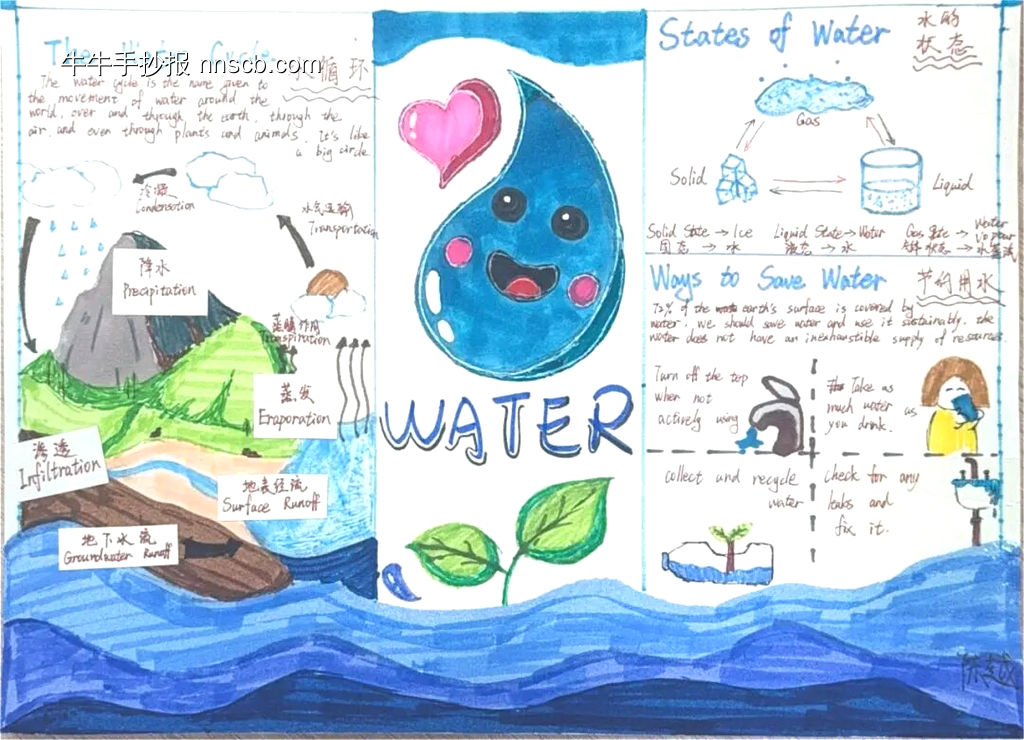 The Water Cycle
牛牛手抄报 nnscb.com
循环
The water cycle is the name given to
the movement of water around the
world, over and through the earth, through the
air, and even through plants and animals. It's like
a big circle.
冷凝
Condensation
水气运输
Transportation
降水
Precipitation
蒸腾作用
蒸发
Eraporation
渗透
Infiltration
地表径流
Surface Runoff
地下水流
Groundwater Runoff
WATER
States of Water
水的
状态
Gas
Solid
Liquid
Solid State → Ice
固态 → 冰
Liquid State → Water
液态 → 水
Gas State → Water
Vapour
状态 → 水蒸
Ways to Save Water
节约用水
72% of the earth's surface is covered by
water. we should save water and use it sustainably. the
water does not have an inexhaustible supply of resources.
Turn off the tap
when not
actively using
Take as
much water as
you drink.
collect and recycle
water
check for any
leaks and
fix it.